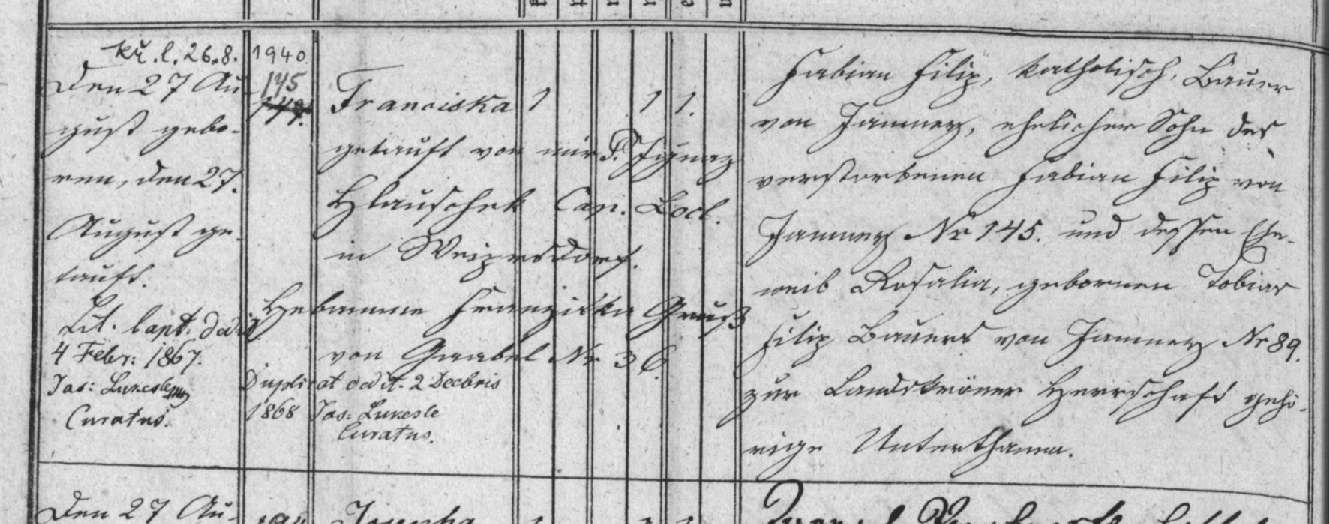 Kř. l. 26.8. 1940
Den 27 Au-
gust gebo-
ren, den 27.
August ge-
tauft.
Lit. bapt. dedi
4 Febr: 1867.
Jos: Lukesle
Curatus.
145
Franciska 1 1 1.
getauft von mir P. Ignaz
Hlauschek Cap. Local.
in Weipersdorf.
Hebamme Franziska Gruß
von Gaabel Nr 36.
Dupli-cat dedit. 2 Decbris
1868 Jos. Lukesle
Curatus.
Fabian Filip, katholisch, Bauer
von Jamney, ehelicher Sohn des
verstorbenen Fabian Filip von
Jamney Nr 145. und dessen Ehe-
weib Rosalia, gebornen Tobias
Filip Bauers von Jamney Nr 89.
zur Landskroner Herrschaft gehö-
rige Unterthanen.
Den 27 Au-